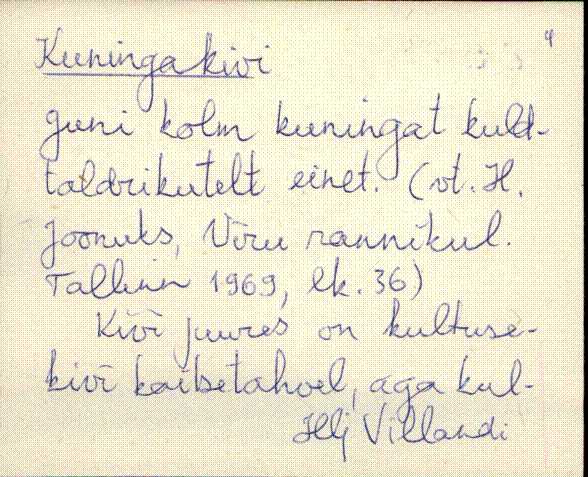 4
Kuningakivi
juni kolm kuningat kuld-
taldrikutelt einet. (vt. H.
Joonuks, Viru rannikul.
Tallinn 1969, lk. 36)
Kivi juures on kultuse-
kivi kaitsetahvel, aga kul-
Hlj Villandi